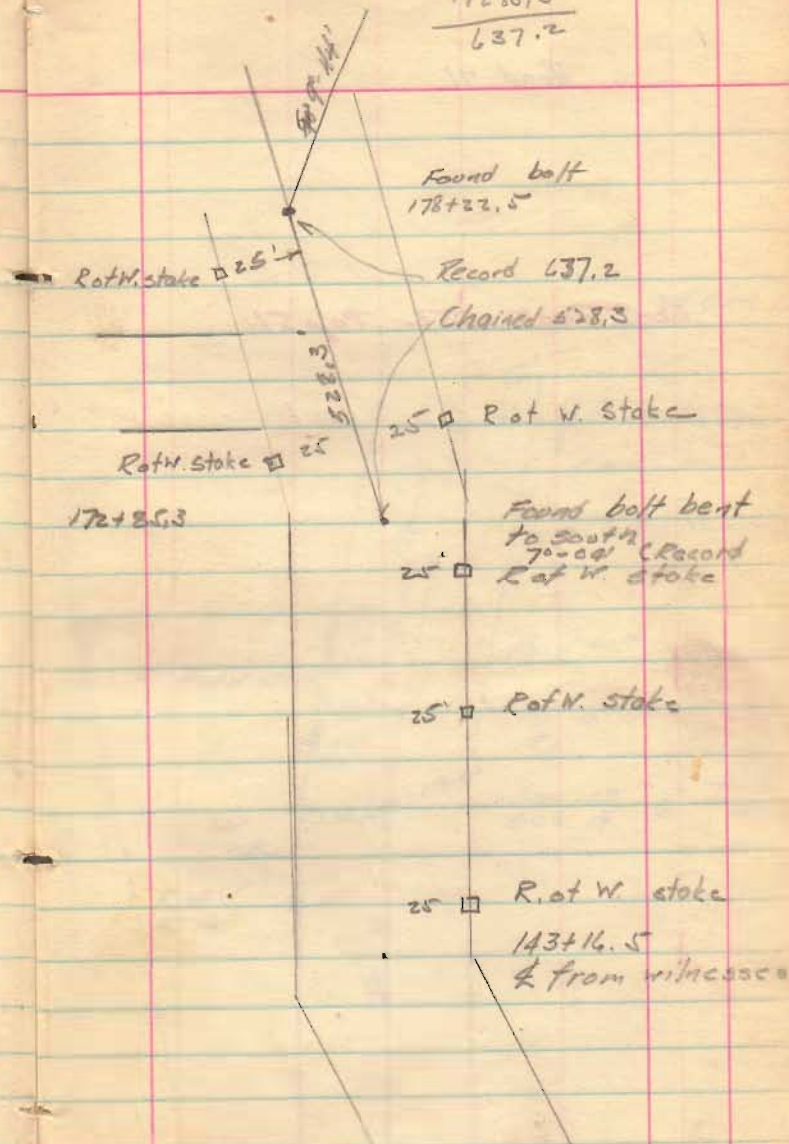 637.2
Found bolt
178+22.5
R of W. stake
25'
Record 637.2
Chained 528.3
528.3'
25
R of W. stake
R of W. stake
25
172+85.3
Found bolt bent
to south
7°-04' (Record
25'
R of W. stake
25'
R of W. stake
25
R. of W. stake
143+16.5
℄ from witnesses